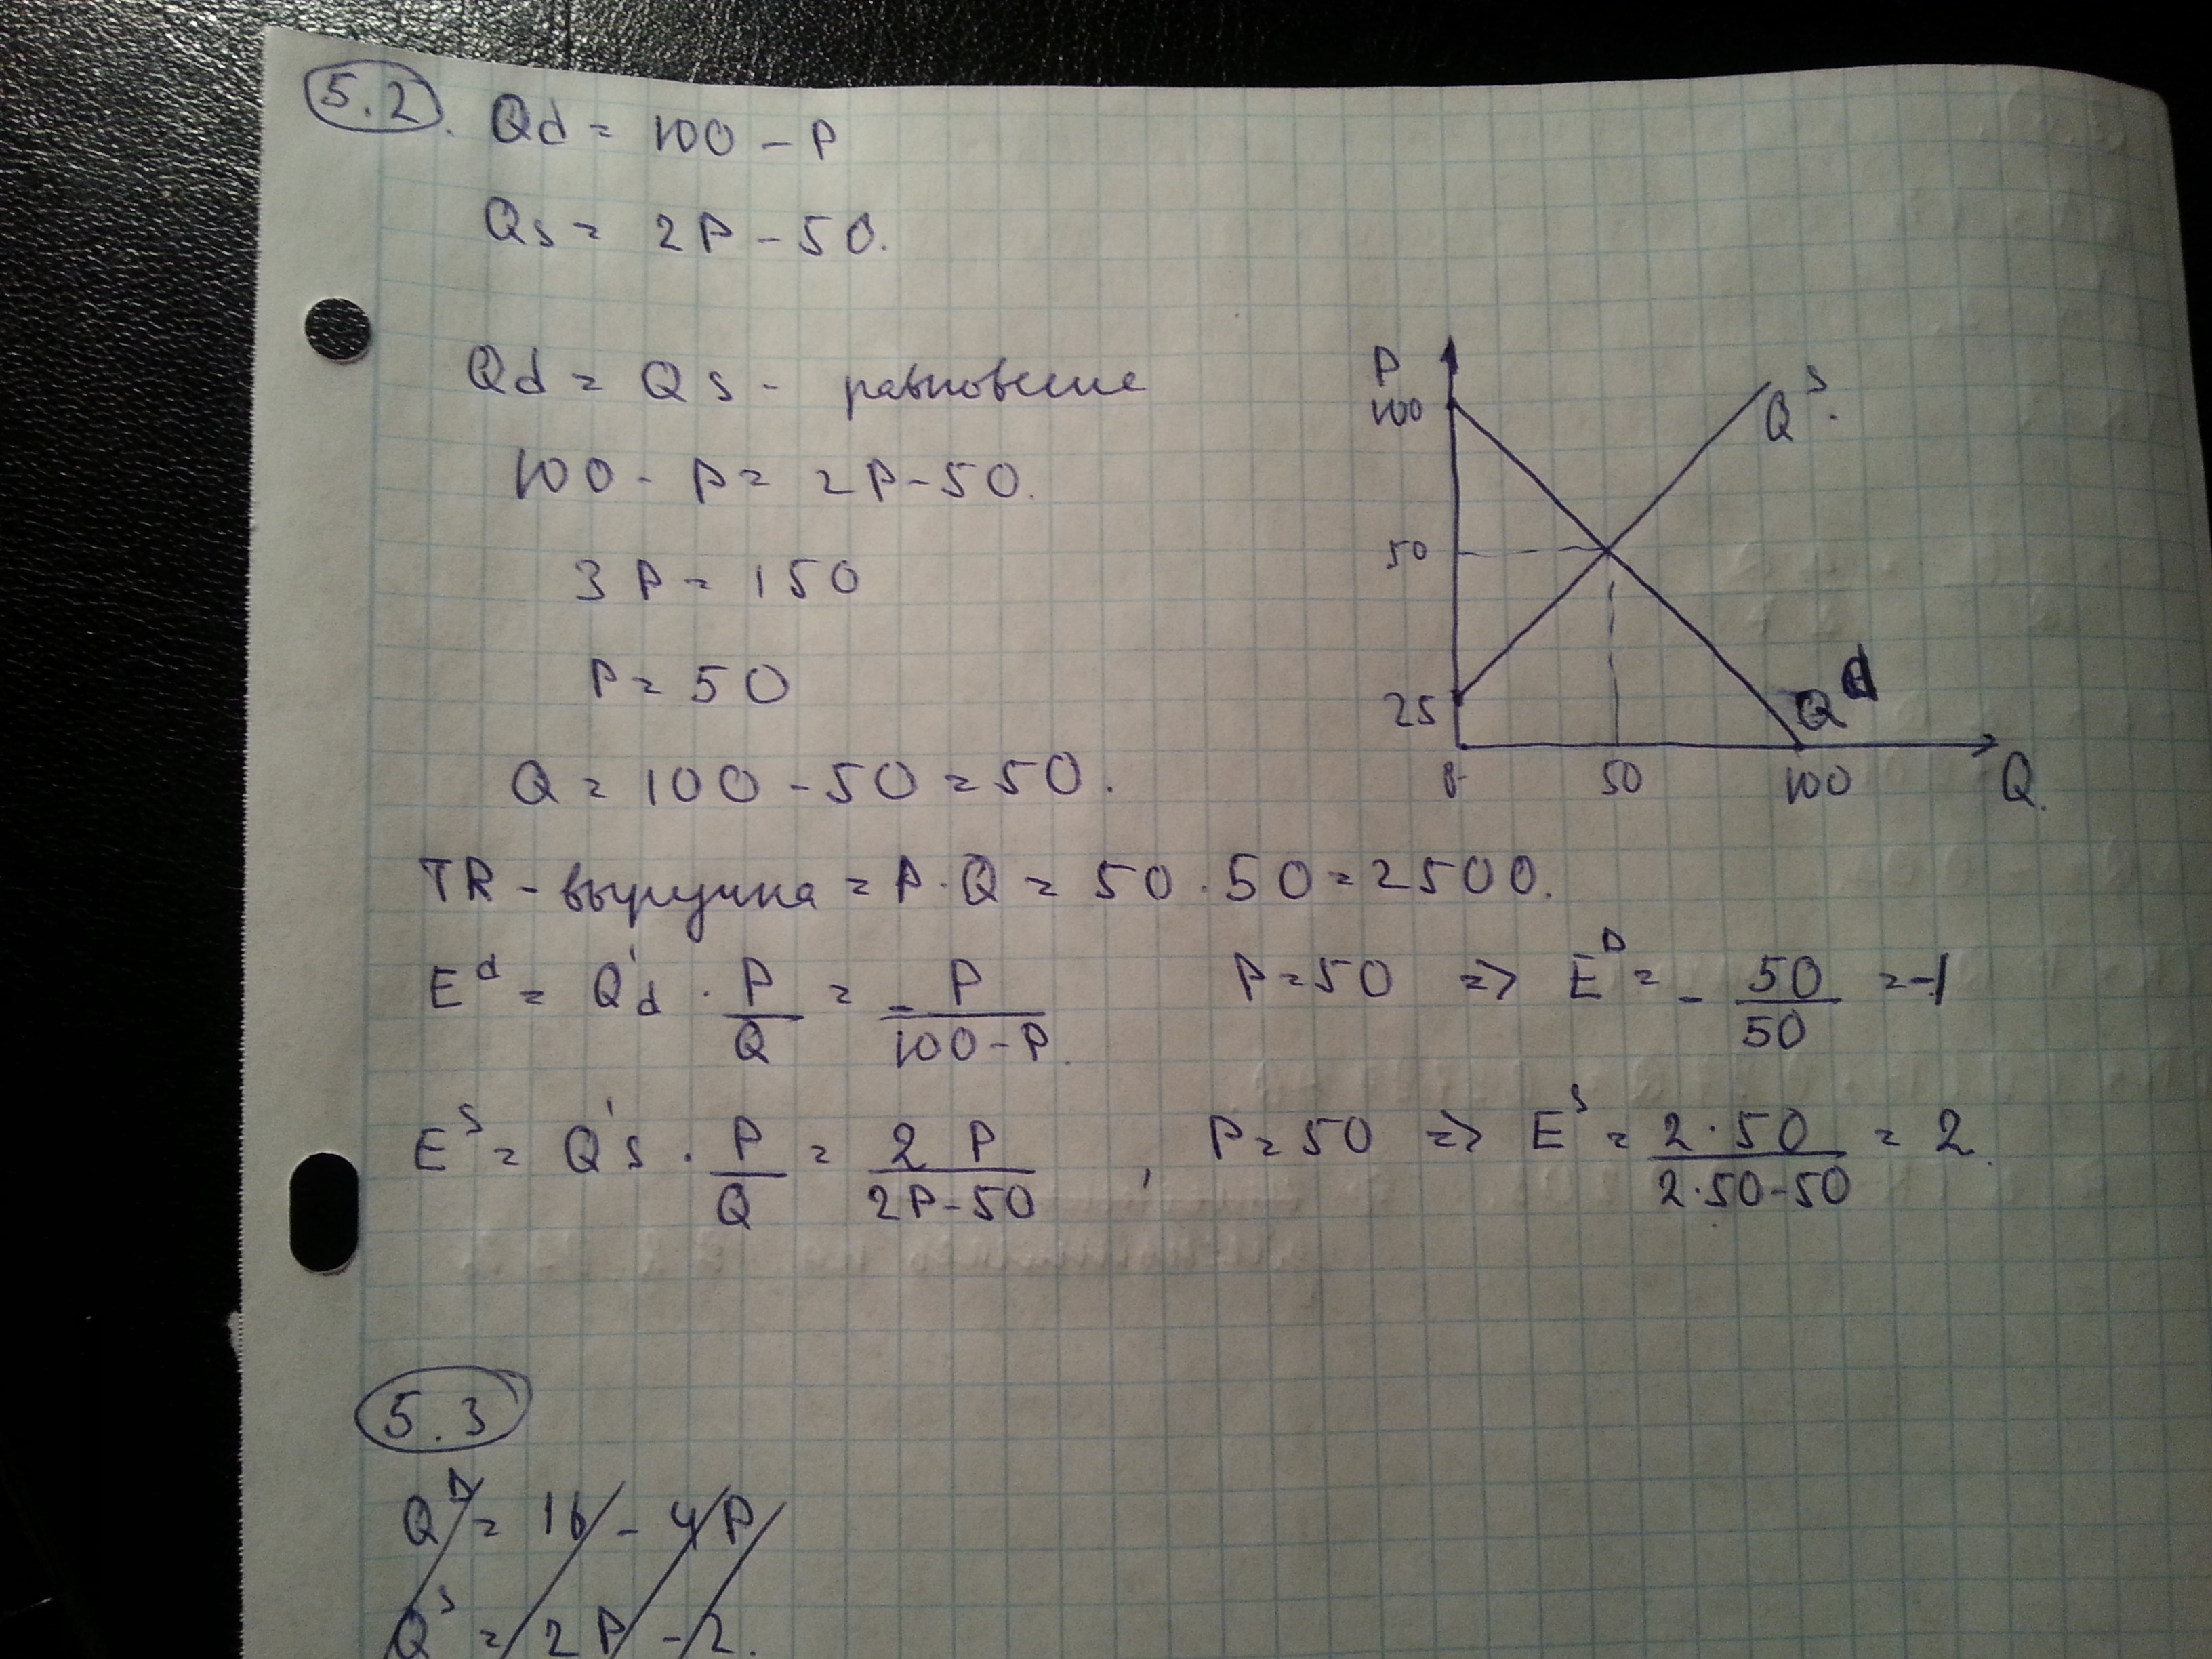 5.2. Qd = 100 - P
Qs = 2P - 50.
Qd = Qs - равновесие
100 - P = 2P - 50.
3P = 150
P = 50
Q = 100 - 50 = 50.
P
100
50
25
0
50
100
Q.
Q^s.
Q^d
TR - выручка = P · Q = 50 · 50 = 2500.
E^d = Q'd · P/Q = -P/(100 - P). P = 50 => E^D = - 50/50 = -1
E^s = Q's · P/Q = 2P/(2P - 50), P = 50 => E^s = 2·50/(2·50-50) = 2.
5.3
Q^D = 16 - 4P
Q^s = 2P - 2.